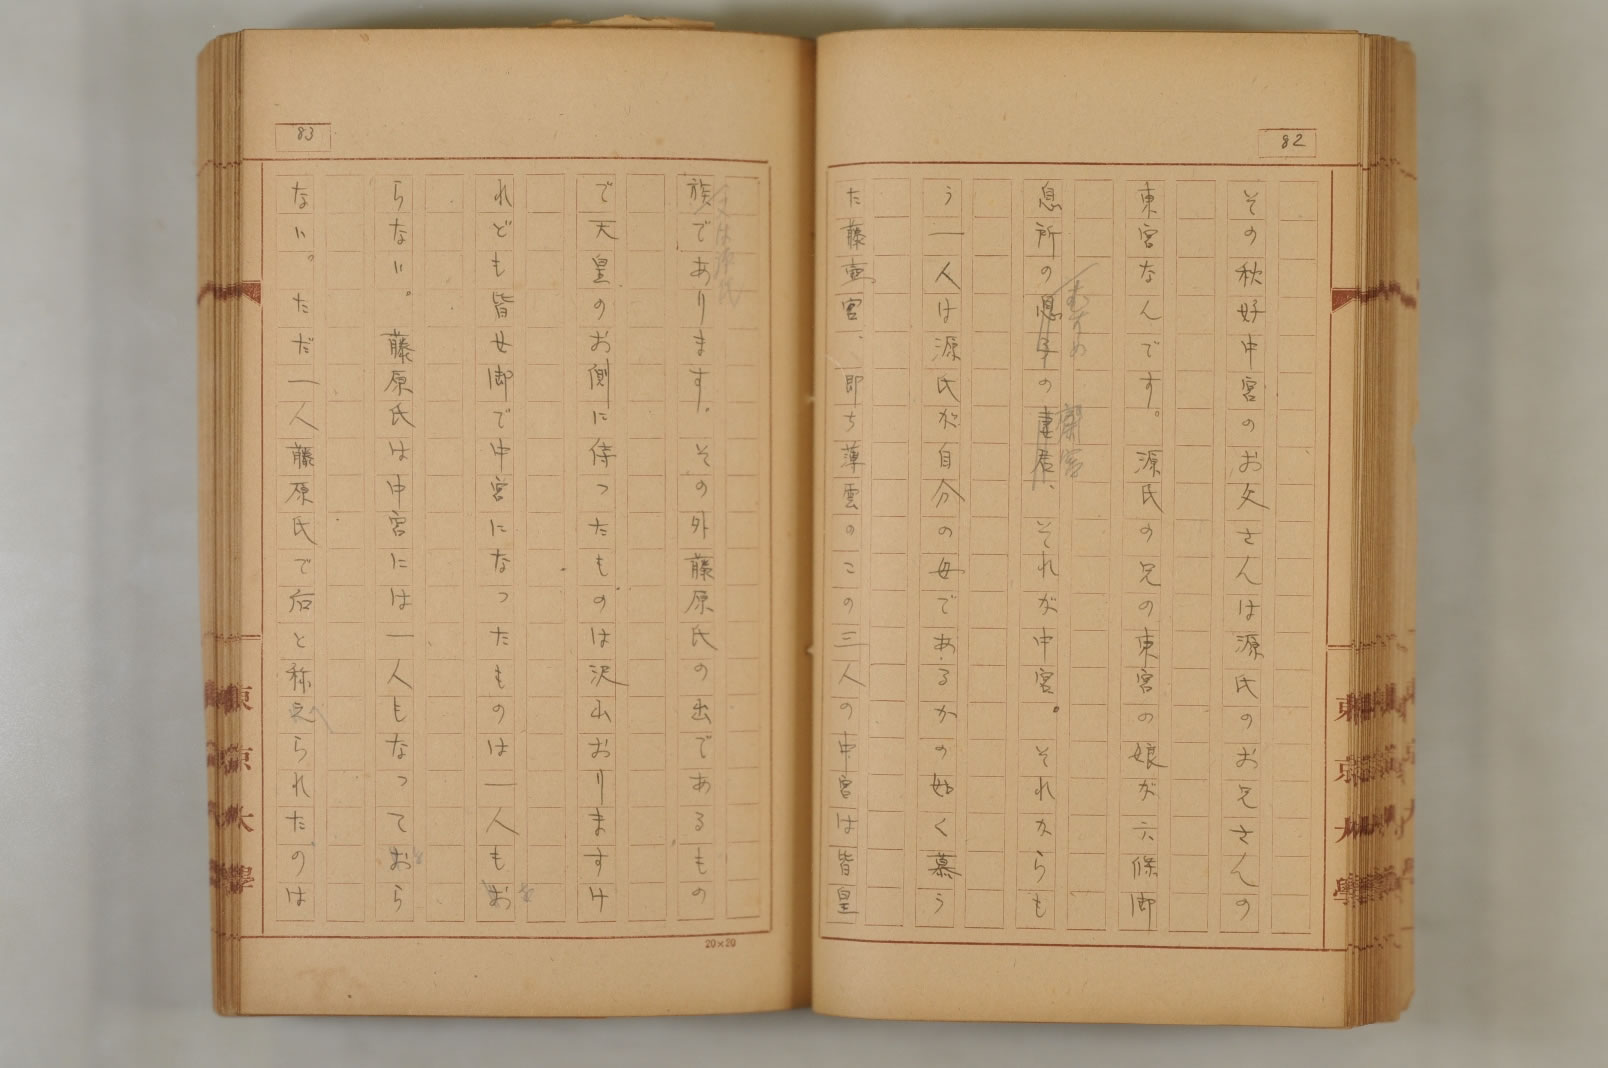 82
その秋好中宮のお父さんは源氏のお兄さんの
東宮なんです。源氏の兄の東宮の娘が六條御
むすめ
齋宮
息所の息子の妻君、それが中宮。それからも
う一人は源氏が自分の母であるかの如く慕う
た藤壺宮、即ち薄雲のこの三人の中宮は皆皇
83
又は源氏
族であります。その外藤原氏の出であるもの
で天皇のお側に侍つたものは沢山おりますけ
れども皆女御で中宮になつたものは一人もお
を
らない。藤原氏は中宮には一人もなっておら
を
ない。ただ一人藤原氏で后と称えられたのは
へ
20×20
東京大學
東京大學